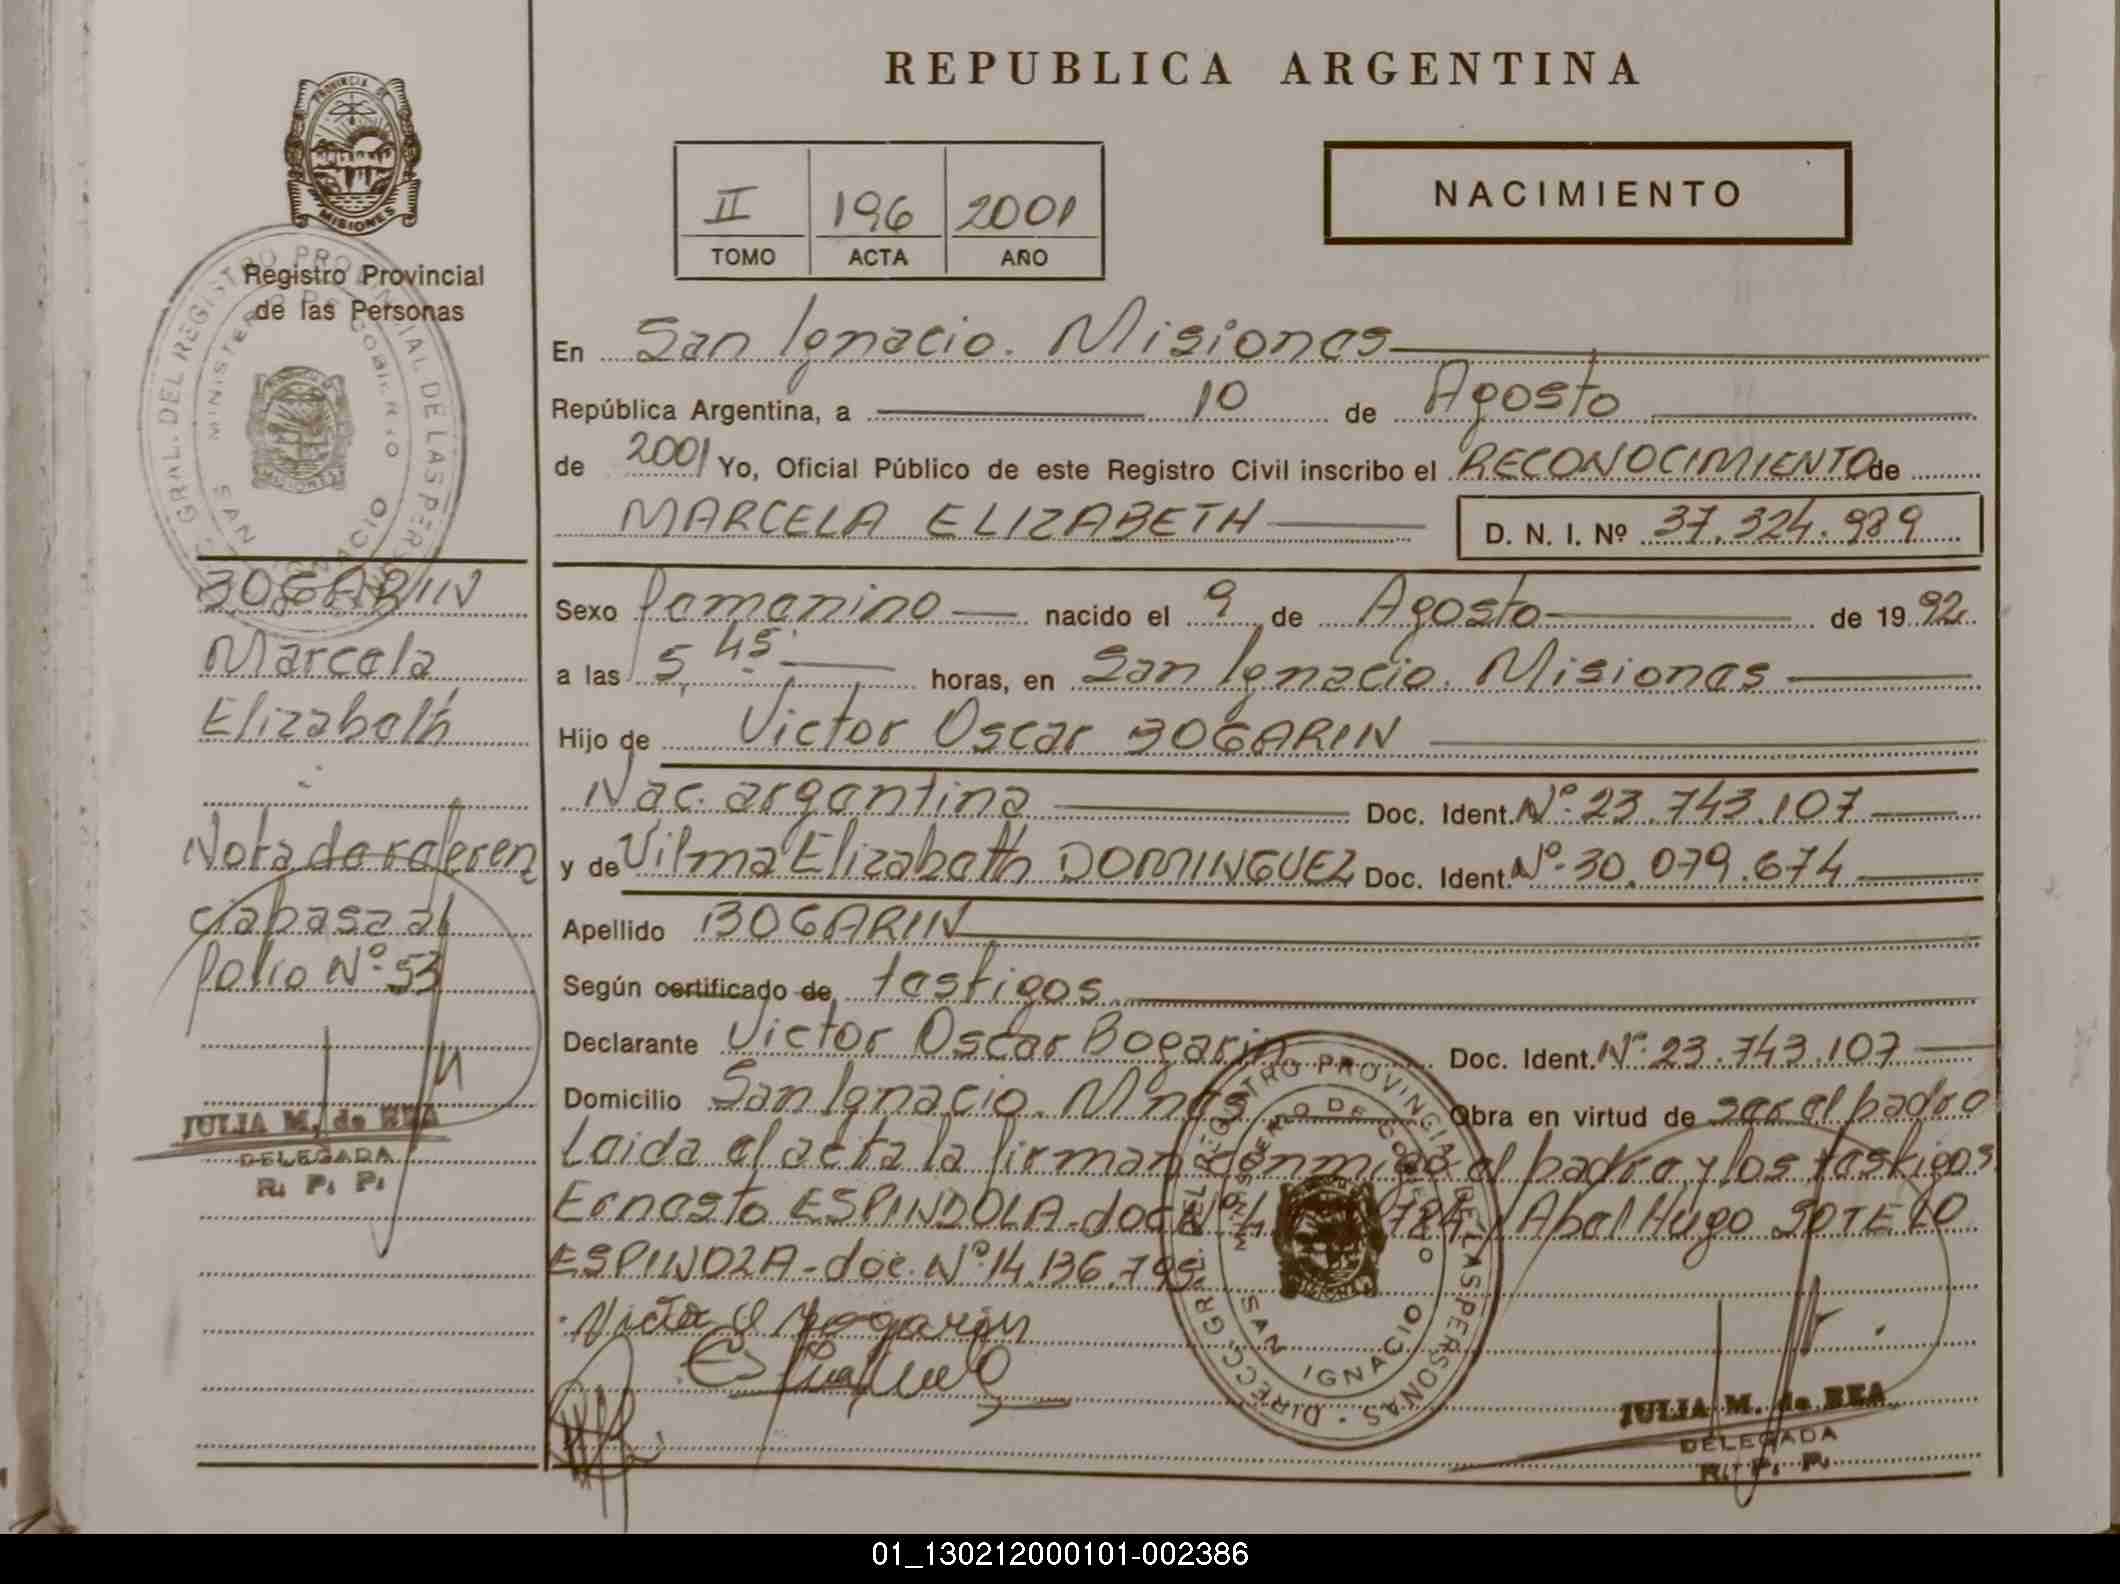 REPUBLICA ARGENTINA
PROVINCIA DE
MISIONES
Registro Provincial
de las Personas
II 196 2001
TOMO ACTA AÑO
NACIMIENTO
En San Ignacio. Misiones
República Argentina, a 10 de Agosto
de 2001 Yo, Oficial Público de este Registro Civil inscribo el RECONOCIMIENTO de
MARCELA ELIZABETH D. N. I. Nº 37.324.989
Sexo femenino nacido el 9 de Agosto de 1992
a las 5,45 horas, en San Ignacio. Misiones
Hijo de Victor Oscar BOGARIN
Nac. argentina Doc. Ident. Nº 23.743.107
y de Vilma Elizabeth DOMINGUEZ Doc. Ident. Nº 30.079.674
Apellido BOGARIN
Según certificado de testigos
Declarante Victor Oscar Bogarin Doc. Ident. Nº 23.743.107
Domicilio San Ignacio. Mnes Obra en virtud de ser el padre
Leida el acta la firman conmigo el padre y los testigos
Ernesto ESPINDOLA - doc Nº 784 / Abel Hugo SOTELO
ESPINOZA - doc. Nº 14.136.795
Victor O Bogarin
BOGARIN
Marcela
Elizabeth
Nota de referen
cia pasa al
folio Nº 53
JULIA M. de BEA
DELEGADA
R. P. P.
DIRECC. GRAL. DEL REGISTRO PROVINCIAL DE LAS PERSONAS
MINISTERIO DE GOBIERNO
SAN IGNACIO
JULIA M. de BEA
DELEGADA
R. P. P.
01_130212000101-002386